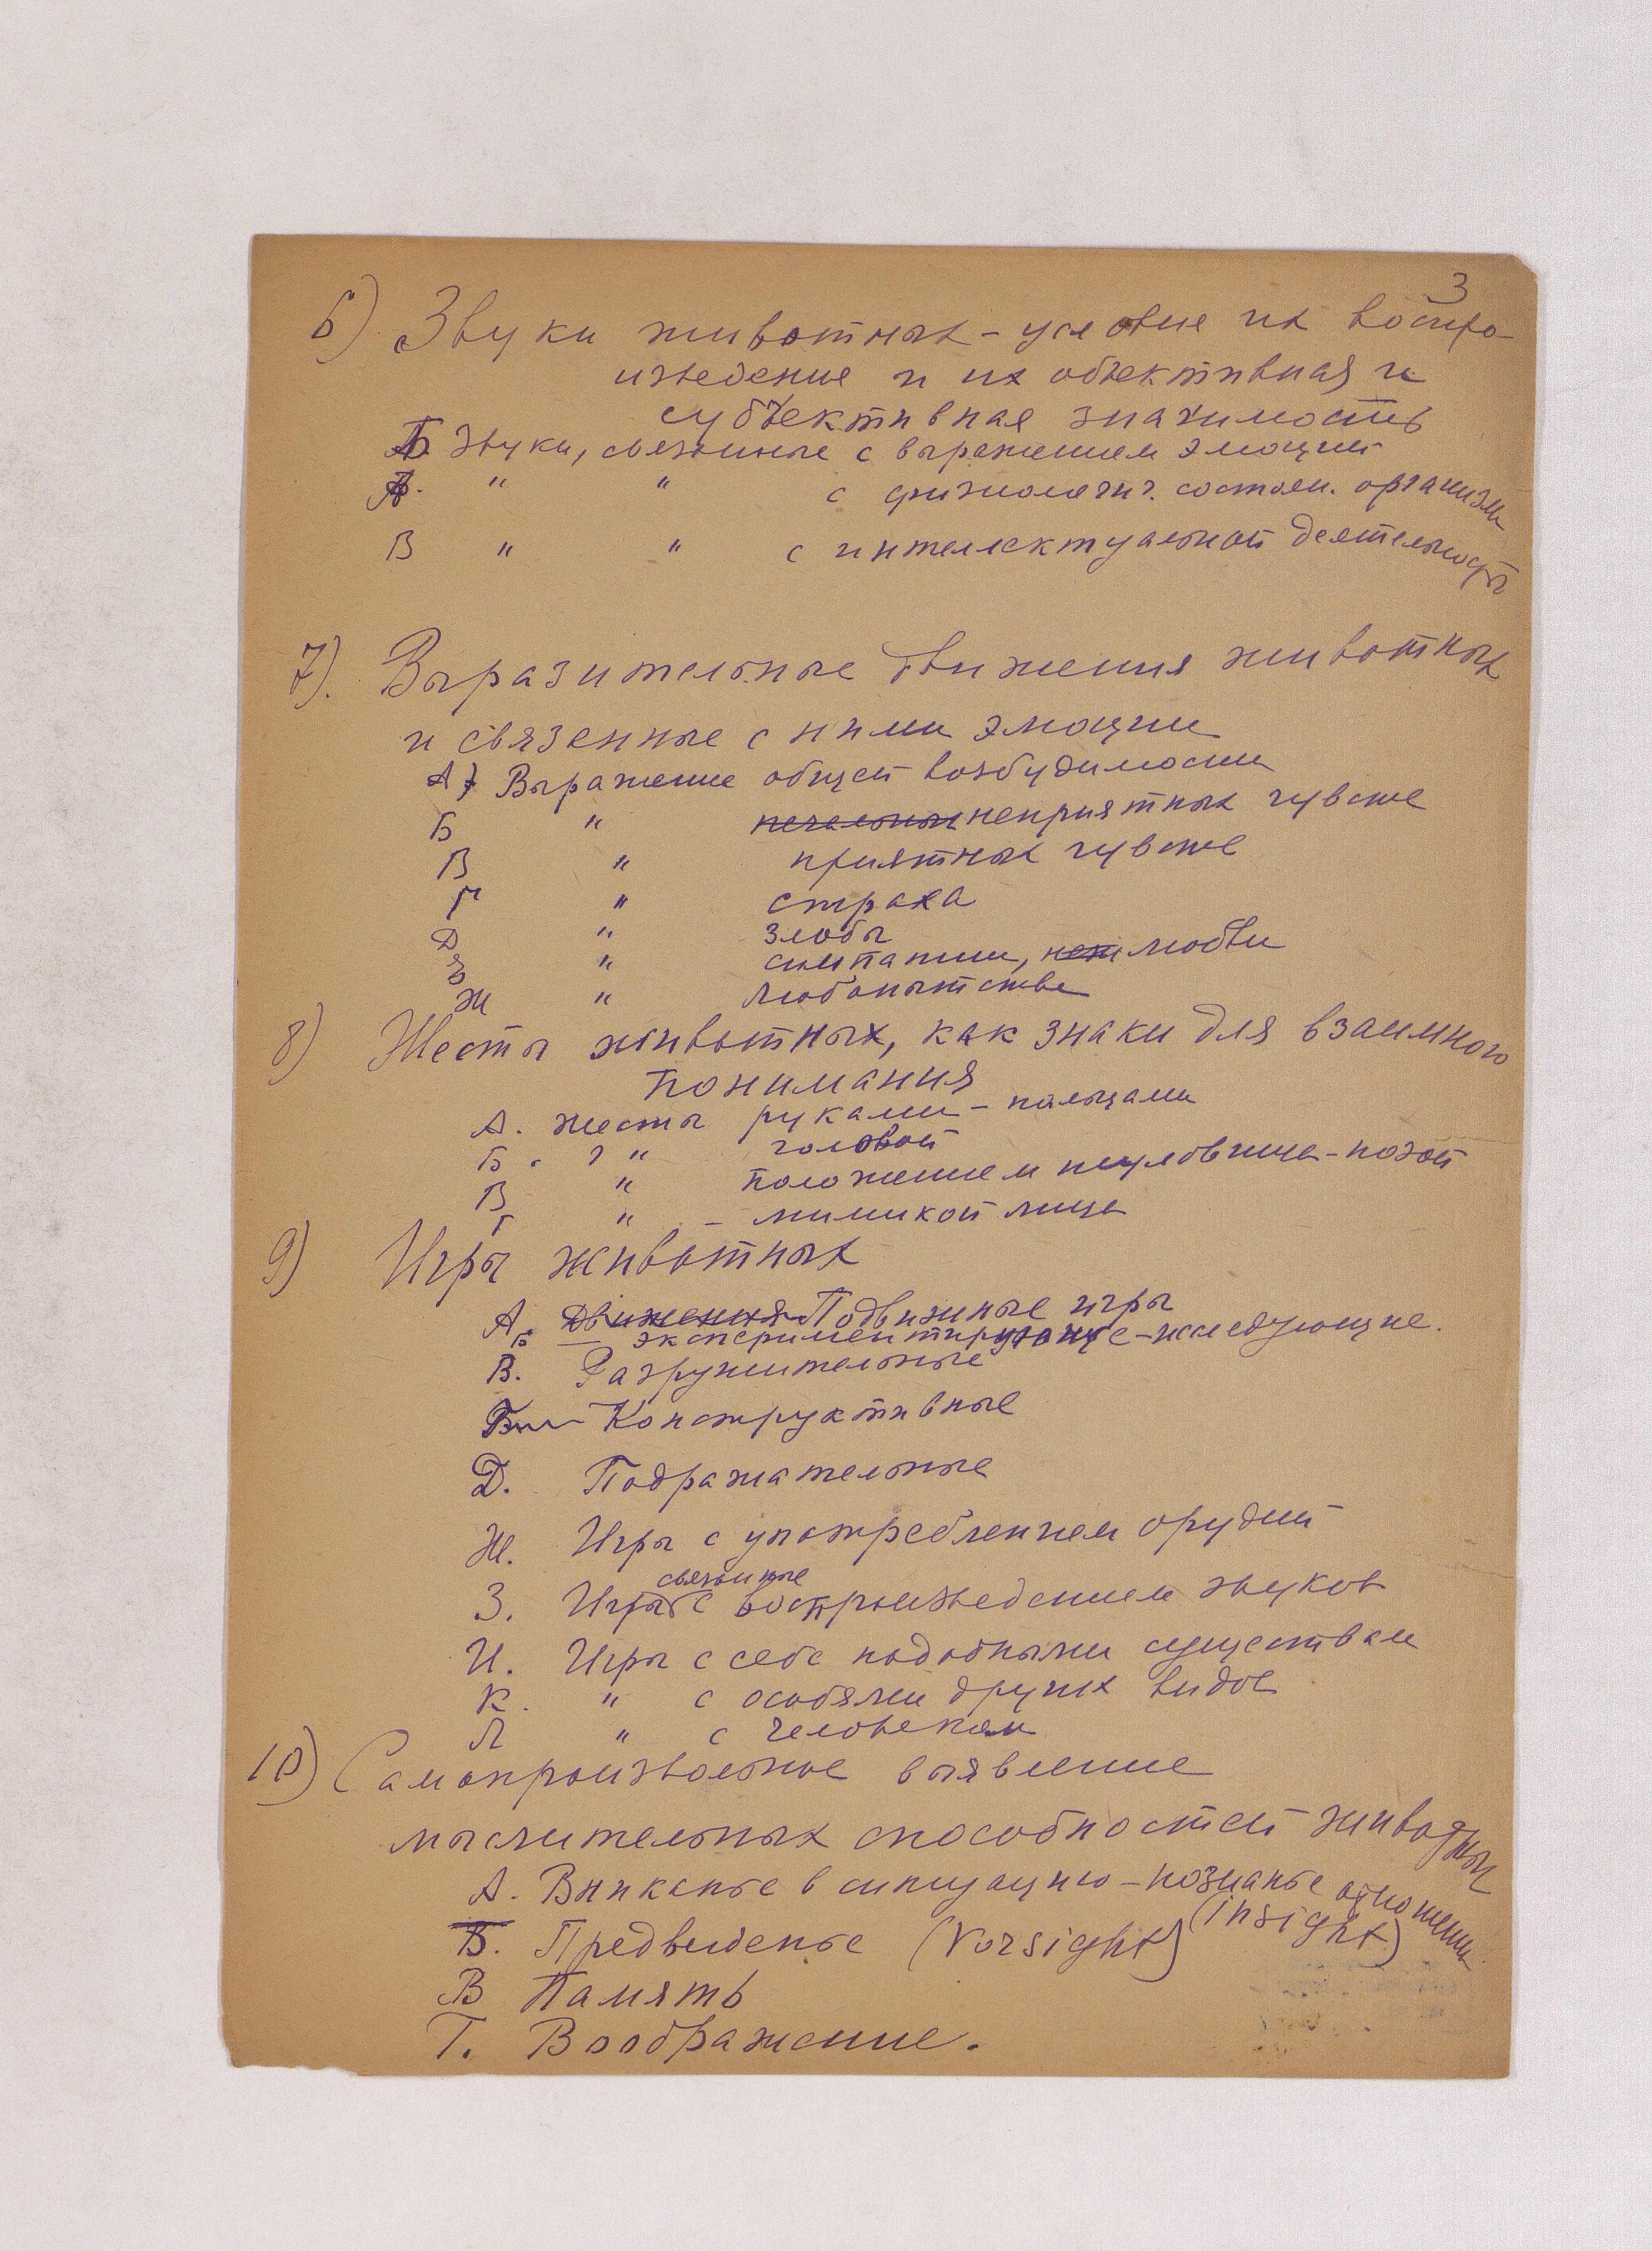 3
6) Звуки животных - условие их воспро-
изведение и их объективная и
субъективная значимость
Б. Звуки, связанные с выражением эмоций
А. " " с физиологич. состоян. организм
В " " с интеллектуальной деятельность
7). Выразительные движения животных
и связенные с ними эмоции
А) Выражение общей возбудимости
Б " печальных неприятных чувств
В " приятных чувств
Г " страха
Д " злобы
Е " симпатии, любви
Ж " любопытства
8) Жесты животных, как знаки для взаимного
понимания
А. жесты руками - пальцами
Б. ? " головой
В " положением туловища - позой
Г " - мимикой лица
9) Игры животных
А. Движения Подвижные игры
Б — экспериментирующие - исследующие.
В. Разрушительные
Конструктивные
Д. Подражательные
Ж. Игры с употреблением орудий
связанные
З. Игры с воспроизведением звуков
И. Игры с себе подобными существам
К. " с особями других видов
Л " с человеком
10) Самопроизвольное выявление
мыслительных способностей животных
А. Вниканье в ситуацию - познанье отношений
(insight)
Б. Предвиденье (Vorsight)
В Память
Г. Воображение.